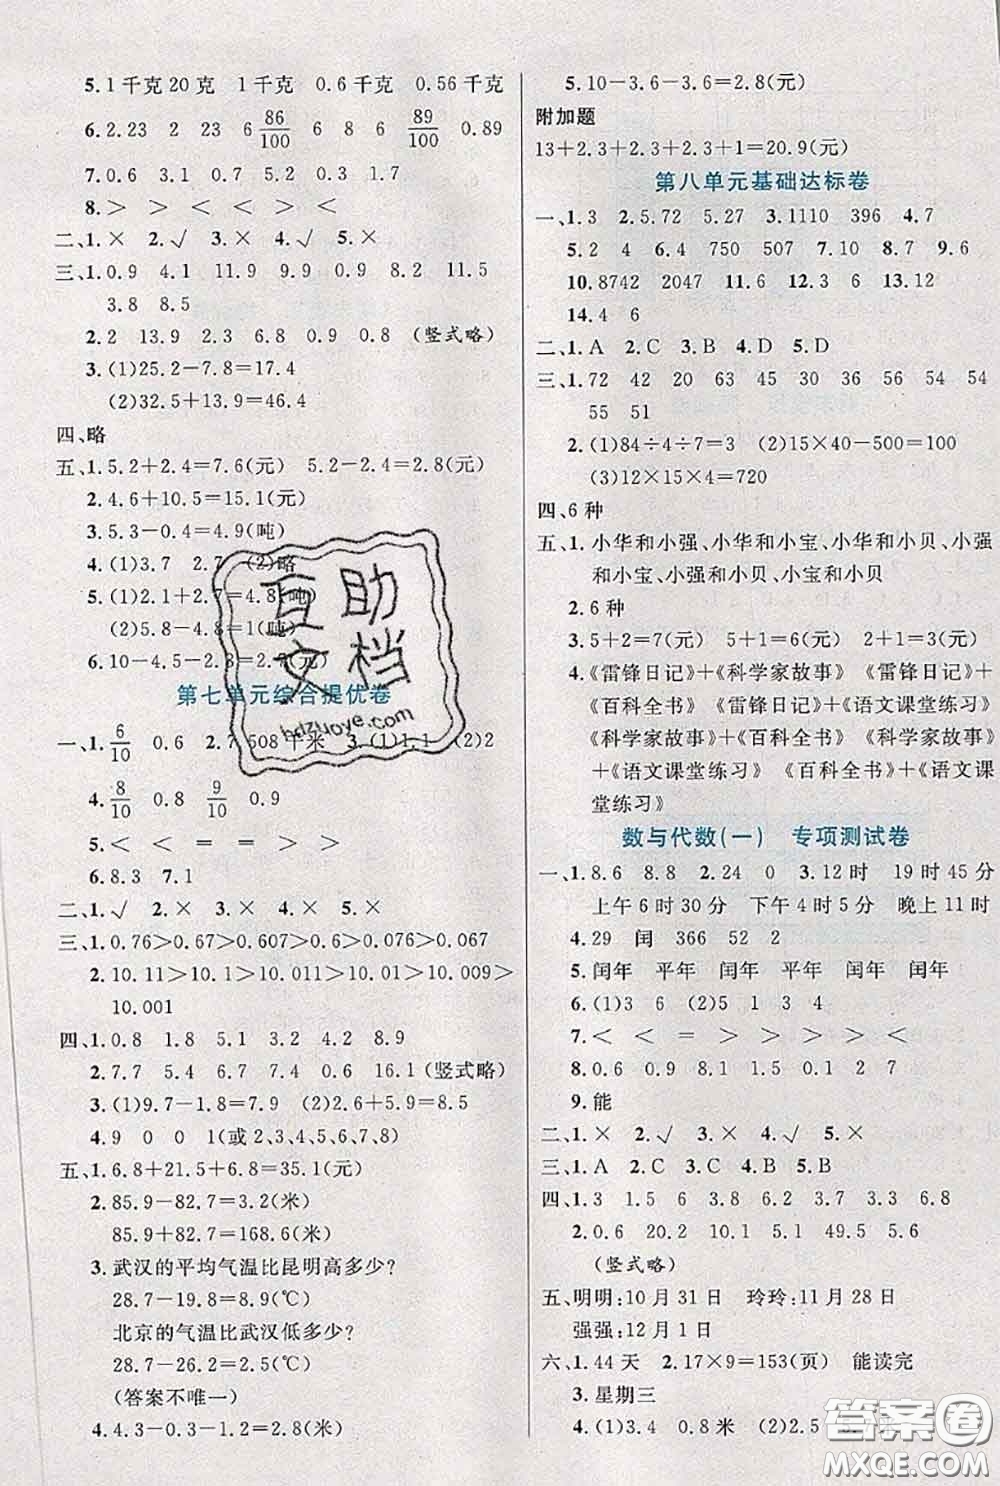 5.1千克20克 1千克 0.6千克 0.56千克
6.2.23 2 23 6 86/100 6 8 6 89/100 0.89
7.0.2 0.4 0.3 1.7
8.> > < < < > <
二、1.× 2.√ 3.× 4.√ 5.×
三、1.0.9 4.1 11.9 9.9 0.9 8.2 11.5
3.8 8.5
2.2 13.9 2.3 6.8 0.9 0.8 (竖式略)
3.(1)25.2-7.8=17.4
(2)32.5+13.9=46.4
四、略
五、1.5.2+2.4=7.6(元) 5.2-2.4=2.8(元)
2.4.6+10.5=15.1(元)
3.5.3-0.4=4.9(吨)
4.(1)3.7 2.7 (2)略
5.(1)2.1+2.7=4.8(吨)
(2)5.8-4.8=1(吨)
6.10-4.5-2.8=2.7(元)
第七单元综合提优卷
一、1.6/10 0.6 2.7 508千米 3.(1)1.1 (2)2
4.8/10 0.8 9/10 0.9
5.< < = = > >
6.8.3 7.1
二、1.√ 2.× 3.× 4.× 5.×
三、1.0.76>0.67>0.607>0.6>0.076>0.067
2.10.11>10.1>10.01>10.009>
10.001
四、1.0.8 1.8 5.1 3.2 4.2 8.9
2.7.7 5.4 6.7 7.6 0.6 16.1(竖式略)
3.(1)9.7-1.8=7.9 (2)2.6+5.9=8.5
4.9 0 0 1(或2、3、4、5、6、7、8)
五、1.6.8+21.5+6.8=35.1(元)
2.85.9-82.7=3.2(米)
85.9+82.7=168.6(米)
3.武汉的平均气温比昆明高多少?
28.7-19.8=8.9(℃)
北京的气温比武汉低多少?
28.7-26.2=2.5(℃)
(答案不唯一)
4.4.3-0.3-1.2=2.8(米)
5.10-3.6-3.6=2.8(元)
附加题
13+2.3+2.3+2.3+1=20.9(元)
第八单元基础达标卷
一、1.3 2.5.72 5.27 3.1110 396 4.7
5.2 4 6.4 750 507 7.10 8.7 9.6
10.8742 2047 11.6 12.3 6 13.12
14.4 6
二、1.A 2.C 3.B 4.D 5.D
三、1.72 42 20 63 45 30 36 56 54 54
55 51
2.(1)84÷4÷7=3 (2)15×40-500=100
(3)12×15×4=720
四、6种
五、1.小华和小强、小华和小宝、小华和小贝、小强
和小宝、小强和小贝、小宝和小贝
2.6种
3.5+2=7(元) 5+1=6(元) 2+1=3(元)
4.《雷锋日记》+《科学家故事》 《雷锋日记》+
《百科全书》 《雷锋日记》+《语文课堂练习》
《科学家故事》+《百科全书》 《科学家故事》
+《语文课堂练习》 《百科全书》+《语文课
堂练习》
数与代数(一) 专项测试卷
一、1.8.6 8.8 2.24 0 3.12时 19时45分
上午6时30分 下午4时5分 晚上11时
4.29 闰 366 52 2
5.闰年 平年 闰年 平年 闰年 闰年
6.(1)3 6 (2)5 1 3 4
7.< < = > > > > <
8.0.6 0.9 8.1 1.5 0.1 2 7
9.能
二、1.× 2.√ 3.× 4.√ 5.×
三、1.A 2.C 3.C 4.B 5.B
四、1.3 1.5 6 3.8 6.2 3.5 3.3 6.8
2.0.6 20.2 10.1 5.1 49.5 5.6
(竖式略)
五、明明:10月31日 玲玲:11月28日
强强:12月1日
六、1.44天 2.17×9=153(页) 能读完
3.星期三
4.(1)3.4 0.8米 (2)2.5
互助
文档
hdzuoye.com
答案卷
MXQE.COM